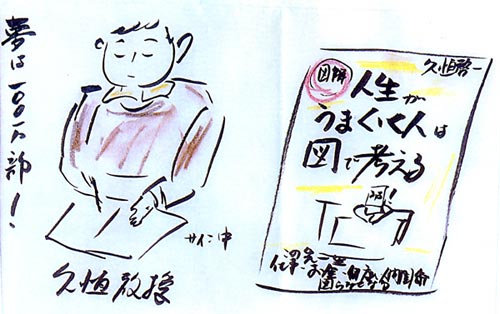 夢は一〇〇万部！
サイン中
久恒教授
久恒啓一
図解
人生が
うまくいく人は
図で考える